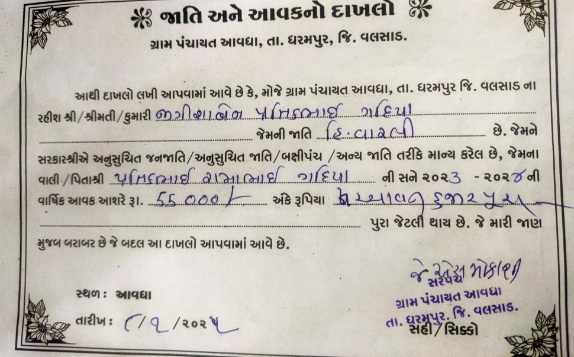 જાતિ અને આવકનો દાખલો
ગ્રામ પંચાયત આવધા, તા. ધરમપુર, જિ. વલસાડ.
આથી દાખલો લખી આપવામાં આવે છે કે, મોજે ગ્રામ પંચાયત આવધા, તા. ધરમપુર જિ. વલસાડ ના
રહીશ શ્રી/શ્રીમતી/કુમારી જીગીશાબેન પ્રતિકભાઈ ગદિયા
જેમની જાતિ હિ.વારલી છે. જેમને
સરકારશ્રીએ અનુસુચિત જનજાતિ/અનુસુચિત જાતિ/બક્ષીપંચ /અન્ય જાતિ તરીકે માન્ય કરેલ છે, જેમના
વાલી/પિતાશ્રી પ્રતિકભાઈ રામાભાઈ ગદિયા ની સને ૨૦૨૩ - ૨૦૨૪ની
વાર્ષિક આવક આશરે રૂા. 55000/- અંકે રૂપિયા પંચાવન હજાર પુરા
પુરા જેટલી થાય છે. જે મારી જાણ
મુજબ બરાબર છે જે બદલ આ દાખલો આપવામાં આવે છે.
સ્થળ : આવધા
તારીખ : /૨૦૨
સરપંચ
ગ્રામ પંચાયત આવધા
તા. ધરમપુર. જિ. વલસાડ.
સહી/સિક્કો